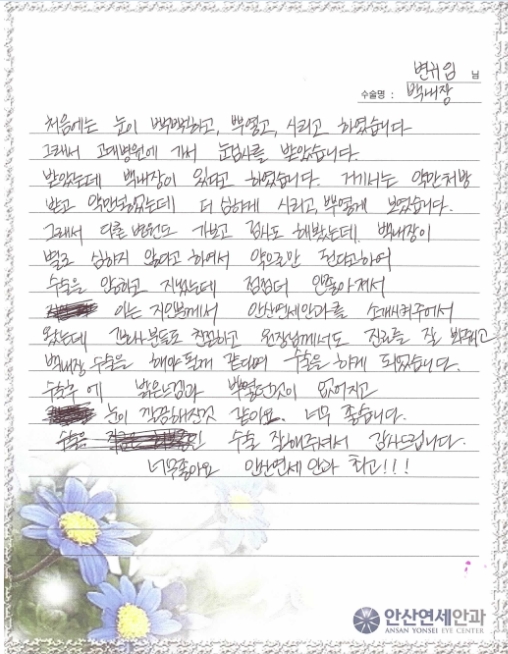 변귀임 님
수술명 : 백내장
처음에는 눈이 빽빽하고, 뿌옇고, 시리고 하였습니다
그래서 고대병원에 가서 눈검사를 받았습니다.
받았는데 백내장이 있다고 하였습니다. 거기서는 약만처방
받고 약만넣었는데 더 심하게 시리고, 뿌옇게 보였습니다.
그래서 다른 병원도 가보고 검사도 해봤는데, 백내장이
별로 심하지 않다고 하여서 약으로만 된다고하여
수술은 안하고 지냈는데 점점더 안좋아져서
아는 지인분께서 안산연세안과를 소개시켜주어서
왔는데 간호사분들도 친절하고 원장님께서도 진료를 잘 봐주고
백내장 수술을 해야 될꺼 같다며 수술을 하게 되었습니다.
수술후에 밝은느낌과 뿌옇던것이 없어지고
눈이 깔끔해진것 같아요. 너무 좋습니다.
수술은 수술 잘해주셔서 감사드립니다.
너무좋아요 안산연세안과 최고!!!
안산연세안과
ANSAN YONSEI EYE CENTER